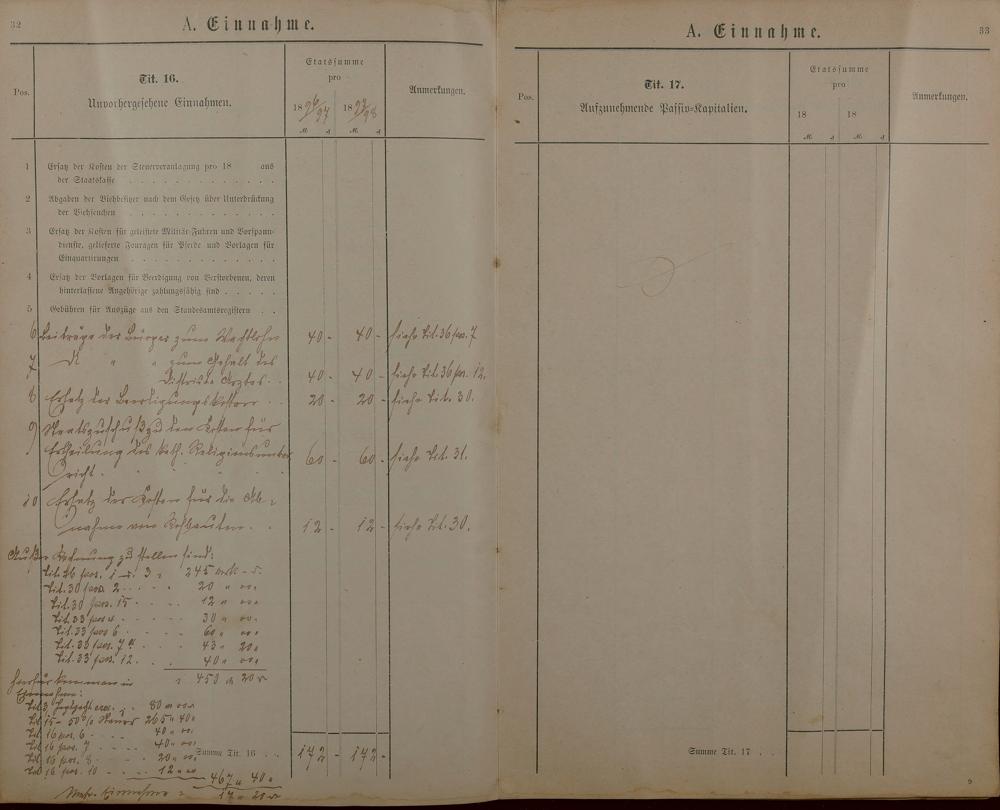 32
A. Einnahme.
Pos.
Tit. 16.
Unvorhergesehene Einnahmen.
Etatssumme
pro
18 96/97 18 97/98
M. ₰ M. ₰
Anmerkungen.
1 Ersatz der Kosten der Steuerveranlagung pro 18 aus
der Staatskasse
2 Abgaben der Viehbesitzer nach dem Gesetz über Unterdrückung
der Viehseuchen
3 Ersatz der Kosten für geleistete Militär-Fuhren und Vorspann-
dienste, gelieferte Fouragen für Pferde und Vorlagen für
Einquartirungen
4 Ersatz der Vorlagen für Beerdigung von Verstorbenen, deren
hinterlassene Angehörige zahlungsfähig sind
5 Gebühren für Auszüge aus den Standesamtsregistern
6 Beiträge der Bürger zum Wachtlohn 40 - 40 - siehe Tit. 36 pos. 7
7 " " zum Gehalt des
Districts Arztes 40 - 40 - siehe Tit. 36 pos. 12.
8 Ersatz der Beerdigungskosten 20 - 20 - siehe Tit. 30.
9 Staatszuschuß zu den Kosten für
Ertheilung des kath. Religionsunter
richt. 60 - 60 - siehe Tit. 31.
10 Ersatz der Kosten für die Ab-
nahme von 12 - 12 - siehe Tit. 30.
Außer Rechnung zu stellen sind:
Tit. 26 pos. 1 u. 3 245
Tit. 30 pos. 2 20
Tit. 30 pos. 15 12
Tit. 33 pos 4 30
Tit. 33 pos 6 60
Tit. 33 pos. 7 43 20
Tit. 33 pos. 12 40
kommen in 450 20
Einnahme:
Tit 3 80
Tit 15 - 50 % 265 40
Tit 16 pos. 6 40
Tit 16 pos. 7 40
Tit 16 pos. 8 20
Tit 16 pos. 10 12
467 40
Mehr Einnahme 17 20
Summe Tit. 16 172 - 172 -
A. Einnahme.
33
Pos.
Tit. 17.
Aufzunehmende Passiv-Kapitalien.
Etatssumme
pro
18 18
M. ₰ M. ₰
Anmerkungen.
Summe Tit. 17
9